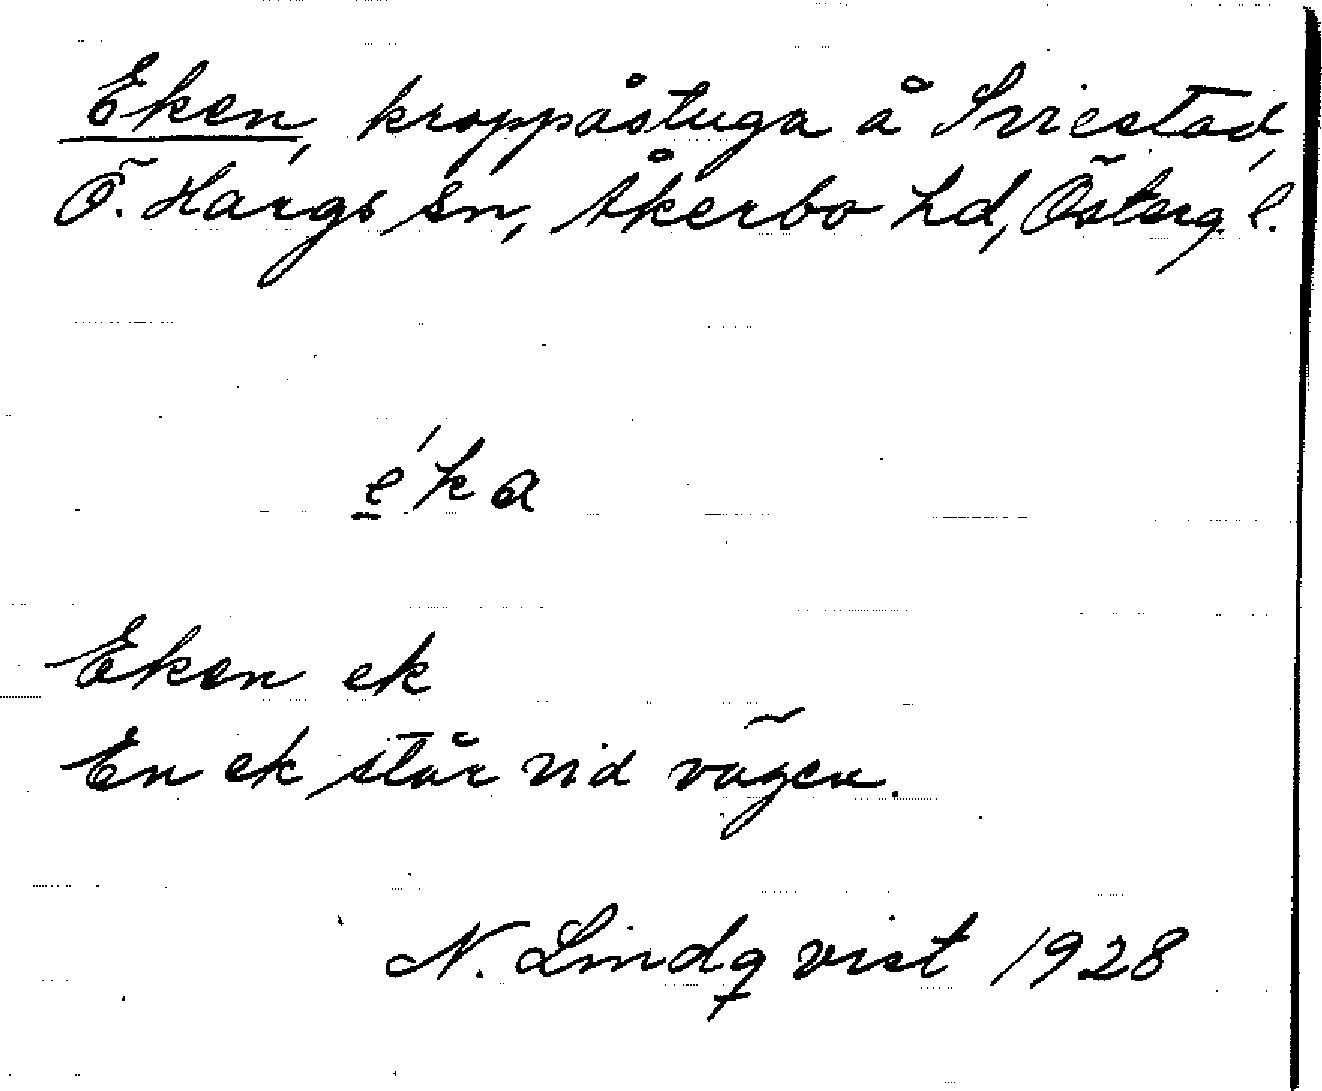 Eken, kroppåstuga å Sviestad,
Ö. Hargs sn, Åkerbo hd, Österg. l.
e̲´ka
Eken ek
En ek står vid vägen.
N. Lindqvist 1928